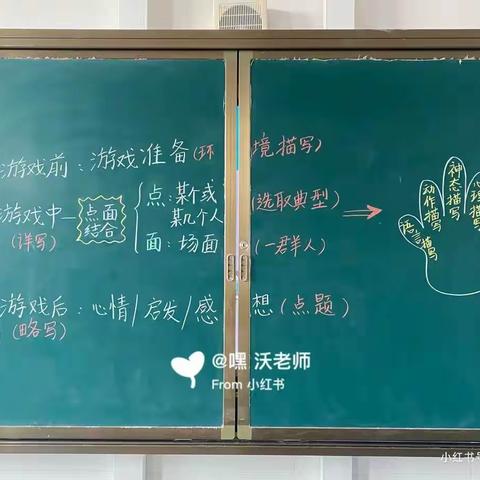 游戏前：游戏准备(环境描写)
游戏中
(详写)
点面
结合
点：某个或
某几个人
(选取典型)
面：场面(一群人)
游戏后：心情/启发/感想(点题)
(略写)
语言描写
动作描写
神态描写
心理描写
@嘿 沃老师
From 小红书
小红书号